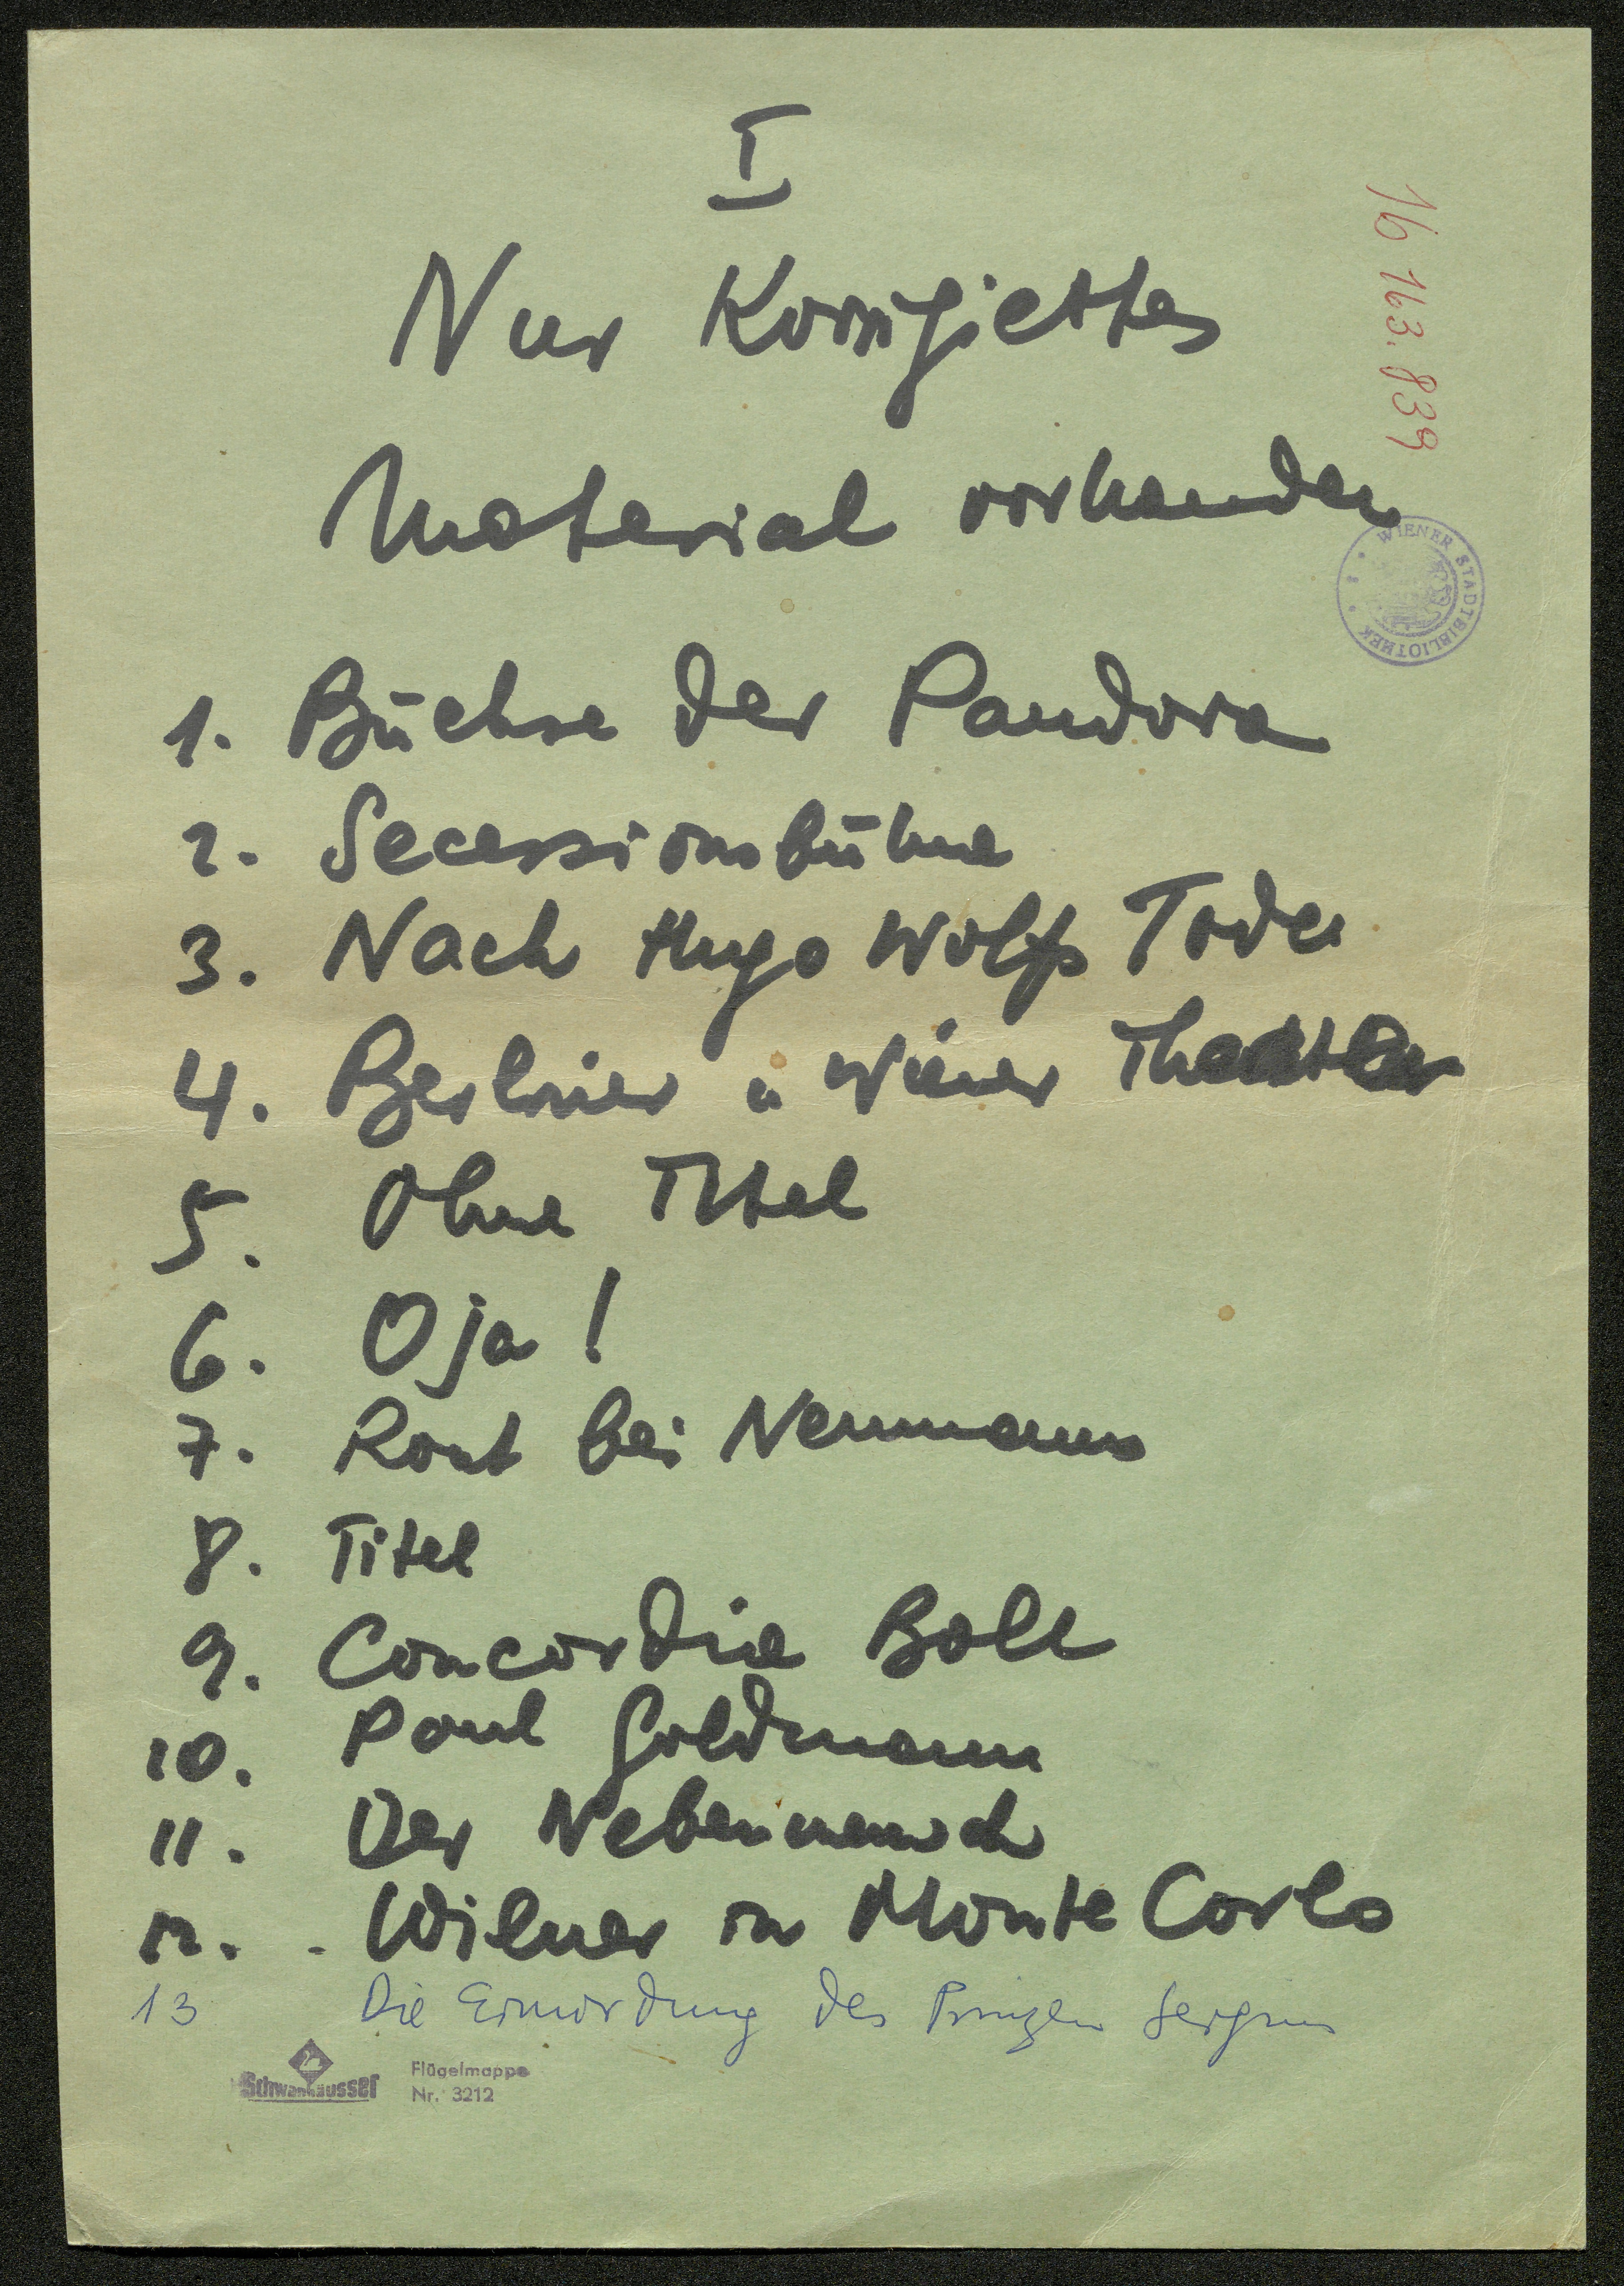 I
Nur Korrigiertes
Material vorhanden
Ib 163.839
WIENER STADTBIBLIOTHEK
1. Büchse der Pandora
2. Secessionsbühne
3. Nach Hugo Wolfs Tode
4. Berliner u Wiener Theater
5. Ohne Titel
6. Oja!
7. Rout bei Neumanns
8. Titel
9. Concordia Ball
10. Paul Goldmann
11. Der Nebenmensch
12. - Wiener in Monte Carlo
13 Die Ermordung des Prinzen Sergius
Schwanhäusser
Flügelmappe
Nr. 3212